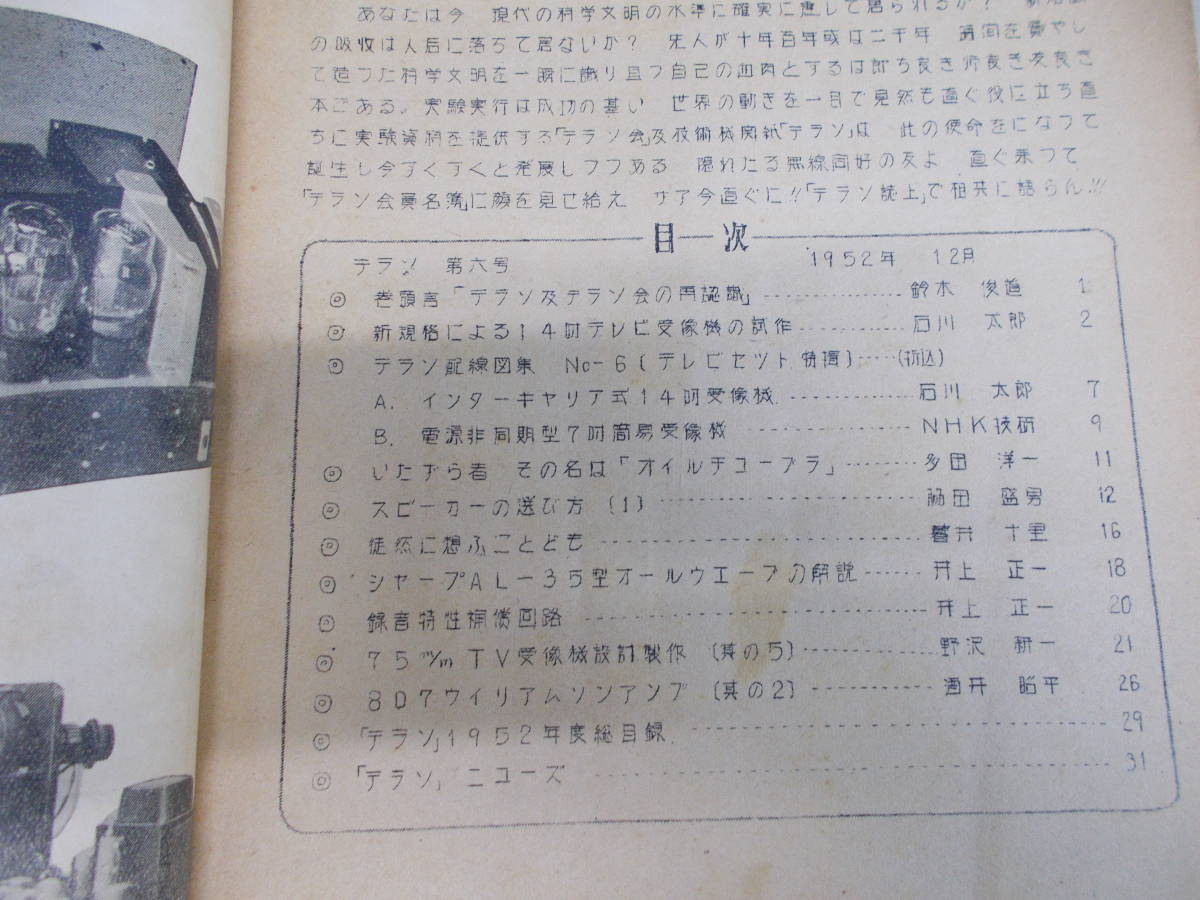 あなたは今 現代の科学文明の水準に確実に達して居られるか?
の吸收は人后に落ちて居ないか? 先人が十年百年或は二千年 時间を費やし
て造つた科学文明を一瞬に識り且つ自己の血肉とするは即ち良き師良き友良き
本である。実験実行は成功の基い 世界の動きを一目で見然も直ぐ役に立ち直
ちに実験資料を提供する「テラン会」及技術機関紙「テラン」は 此の使命をになつて
誕生し今すくすくと発展しつつある 隠れたる無線同好の友よ 直ぐ来つて
「テラン会員名簿」に顔を見せ給え サア今直ぐに!!「テラン誌上」で相共に語らん!!!
目次
テラン 第六号 1952年 12月
◎ 巻頭言「テラン及テラン会の再認識」 鈴木 俊道 1
◎ 新規格による14吋テレビ受像機の試作 石川 太郎 2
◎ テラン配線図集 No-6 (テレビセット特揖) (折込)
A. インターキャリア式14吋受像機 石川 太郎 7
B. 電源非同期型7吋簡易受像機 NHK技研 9
◎ いたずら者 その名は「オイルチューブラ」 多田 洋一 11
◎ スピーカーの選び方 (1) 脇田 盛男 12
◎ 徒然に想ふことども 暮井 十里 16
◎ シャープAL-35型オールウエーブの解説 井上 正一 18
◎ 録音特性補償回路 井上 正一 20
◎ 75m/m TV受像機設計製作 (其の5) 野沢 新一 21
◎ 807ウイリアムソンアンプ (其の2) 酒井 昭平 26
◎ 「テラン」1952年度総目録 29
◎ 「テラン」ニユーズ 31